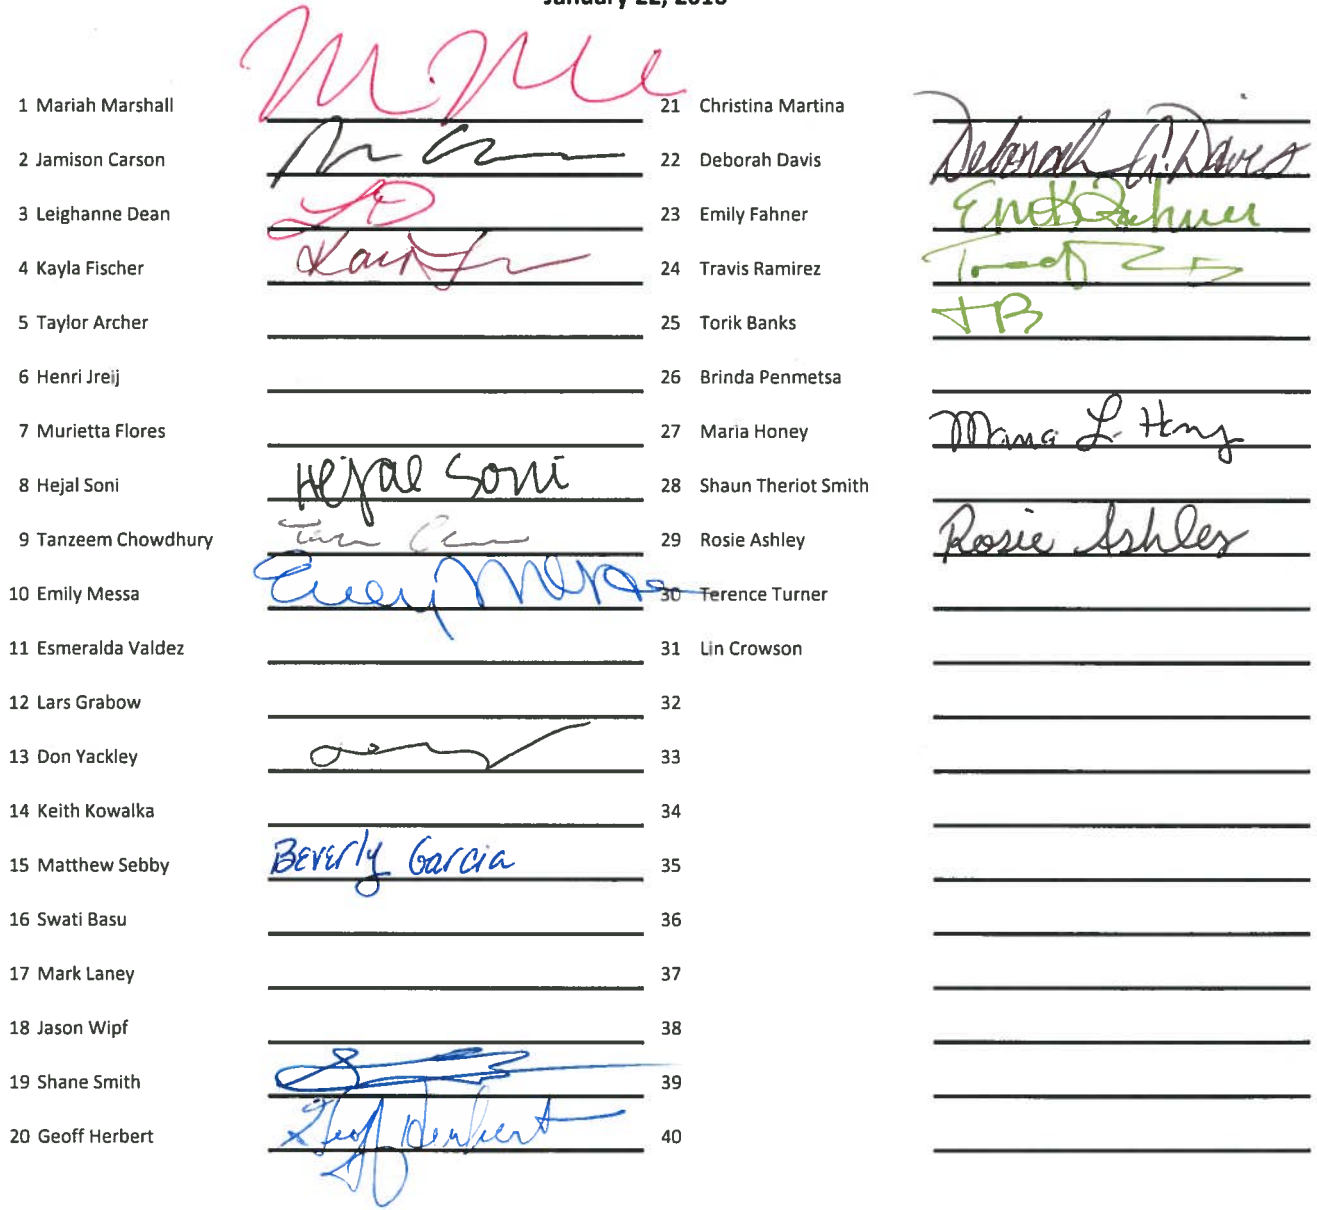 1 Mariah Marshall
2 Jamison Carson
3 Leighanne Dean
4 Kayla Fischer
5 Taylor Archer
6 Henri Jreij
7 Murietta Flores
8 Hejal Soni Hejal Soni
9 Tanzeem Chowdhury
10 Emily Messa
11 Esmeralda Valdez
12 Lars Grabow
13 Don Yackley
14 Keith Kowalka
15 Matthew Sebby Beverly Garcia
16 Swati Basu
17 Mark Laney
18 Jason Wipf
19 Shane Smith
20 Geoff Herbert Geoff Herbert
21 Christina Martina
22 Deborah Davis Deborah A. Davis
23 Emily Fahner
24 Travis Ramirez
25 Torik Banks TB
26 Brinda Penmetsa
27 Maria Honey Maria L. Honey
28 Shaun Theriot Smith
29 Rosie Ashley Rosie Ashley
30 Terence Turner
31 Lin Crowson
32
33
34
35
36
37
38
39
40